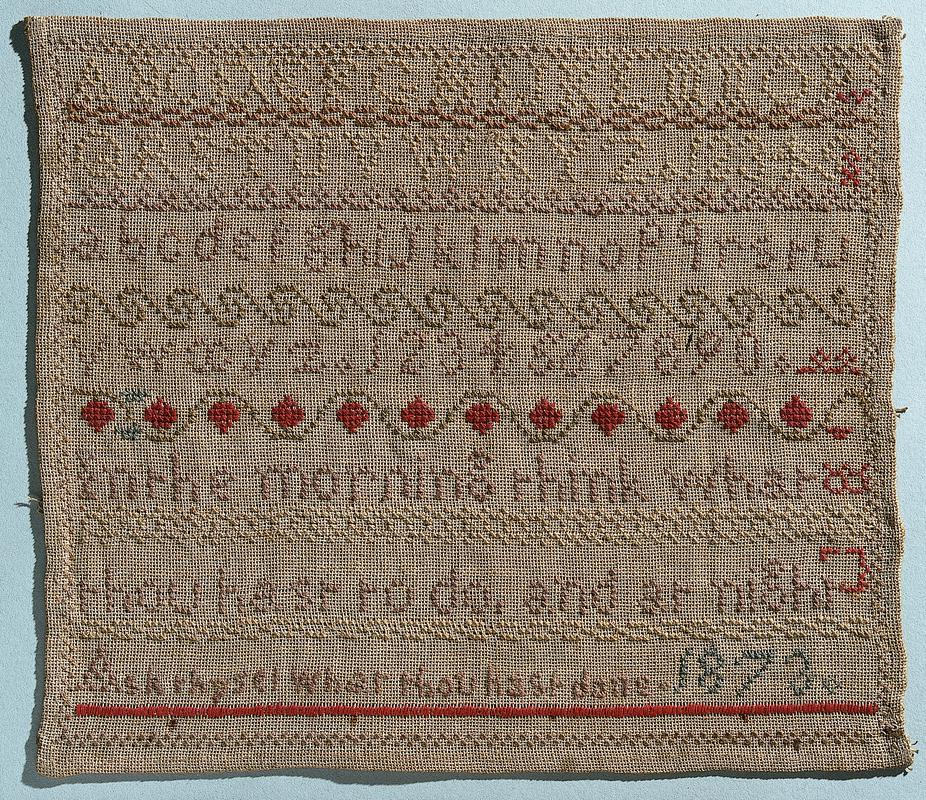 A B C D E F G H I J K L M N O P
Q R S T U V W X Y Z.
a b c d e f g h i j k l m n o p q r s t u
v w x y z. 1 2 3 4 5 6 7 8 9 0.
In the morning think what
thou hast to do, and at night
Ask thyself what thou hast done. 1873.